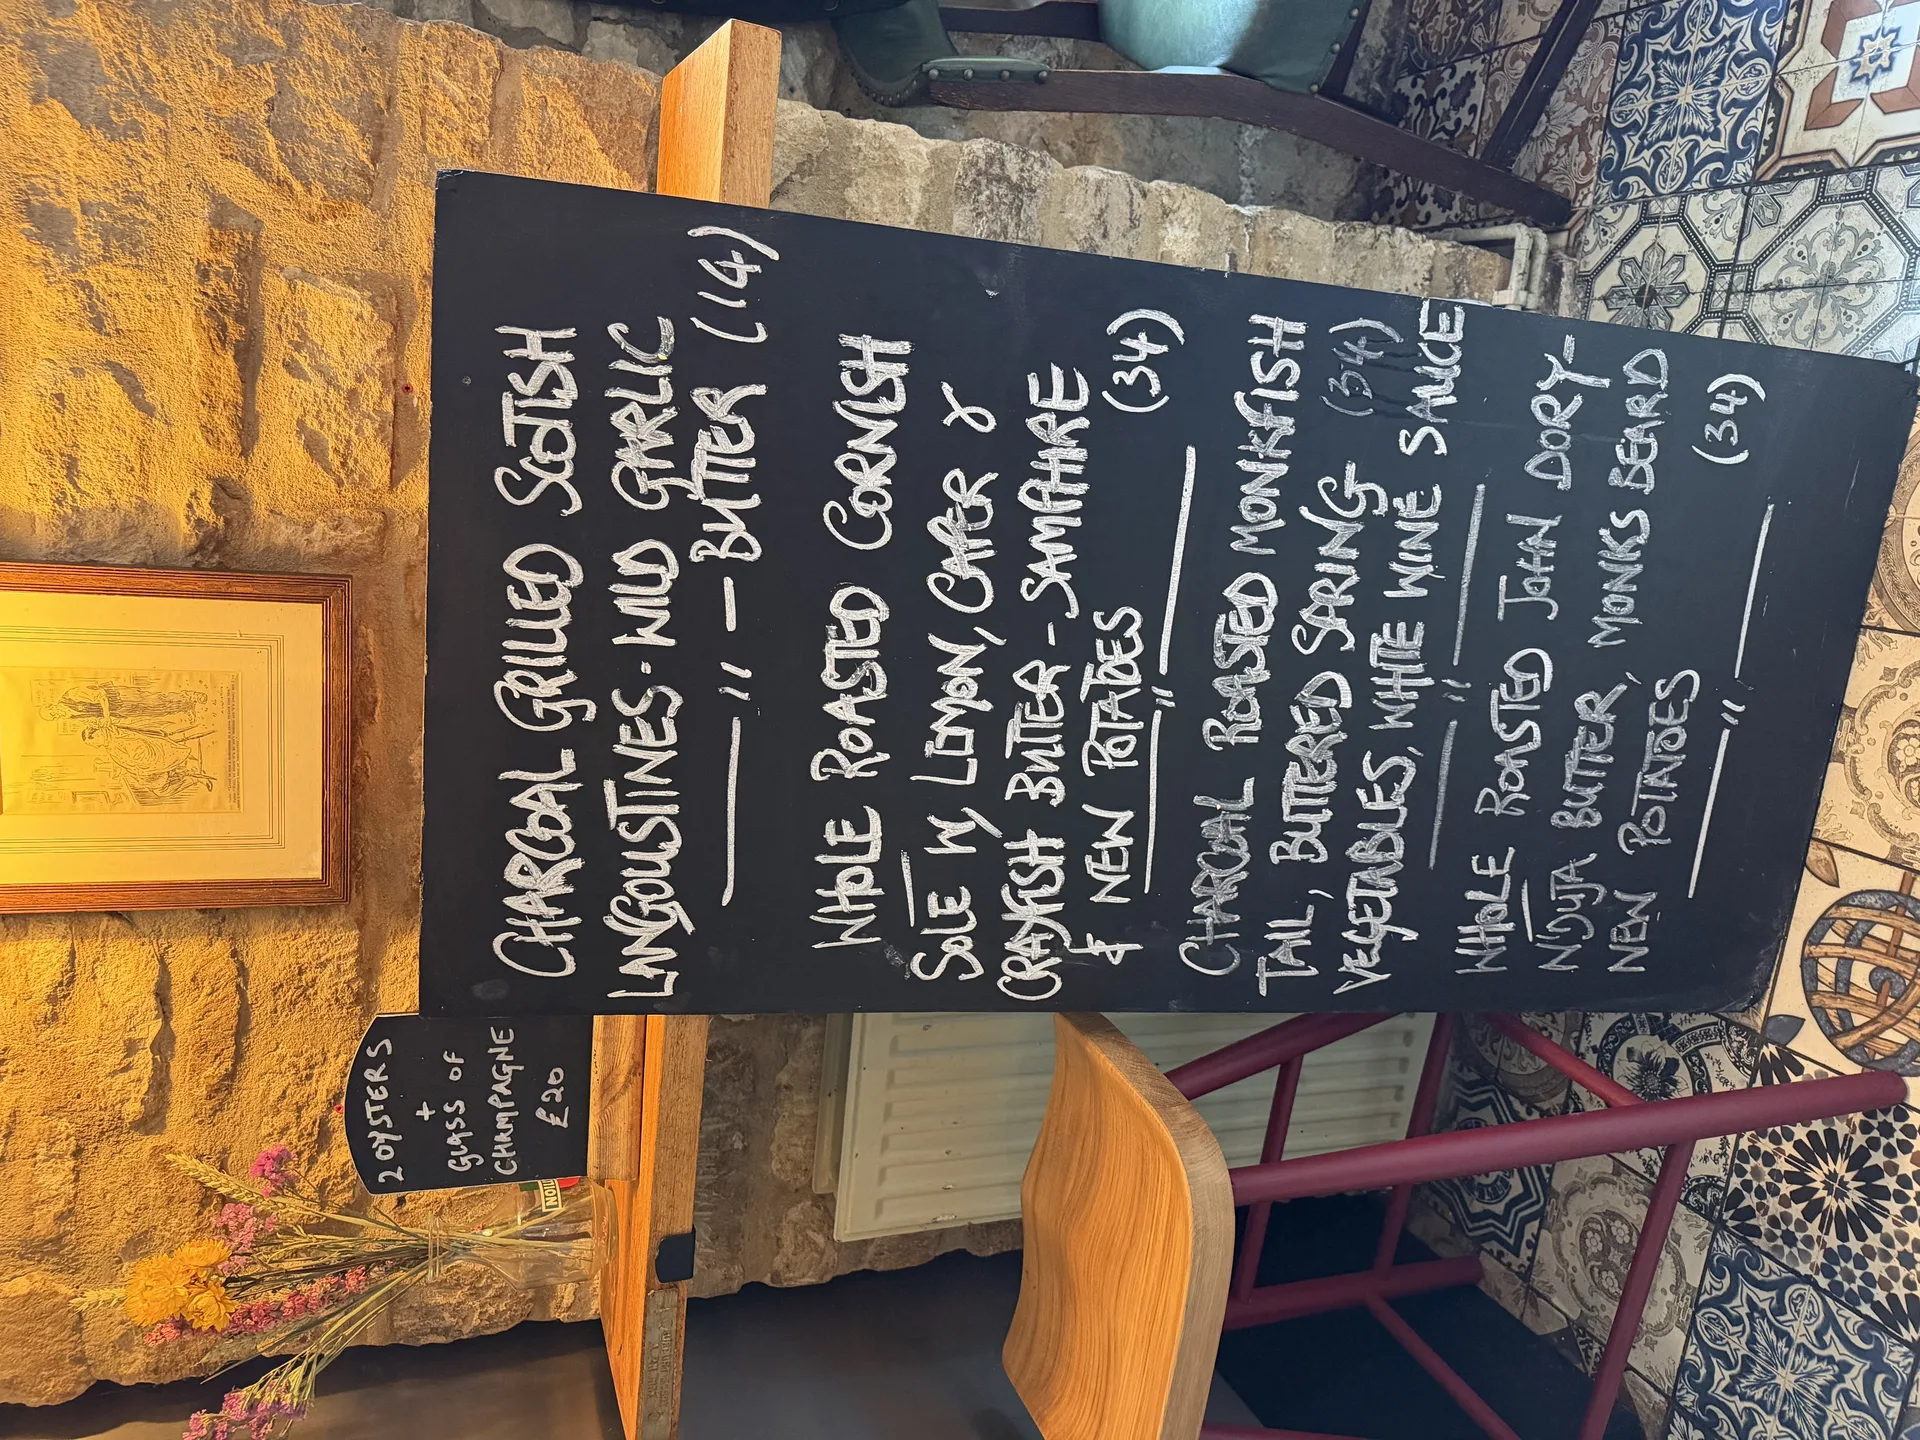 CHARCOAL GRILLED SCOTTISH
LANGOUSTINES - WILD GARLIC
— " — BUTTER (14)
WHOLE ROASTED CORNISH
SOLE W/ LEMON, CAPER &
CRAYFISH BUTTER - SAMPHIRE
& NEW POTATOES (34)
CHARCOAL ROASTED MONKFISH
TAIL, BUTTERED SPRING (34)
VEGETABLES, WHITE WINE SAUCE
WHOLE ROASTED JOHN DORY -
N'DUJA BUTTER, MONKS BEARD
NEW POTATOES (34)
2 OYSTERS
+
GLASS OF
CHAMPAGNE
£20